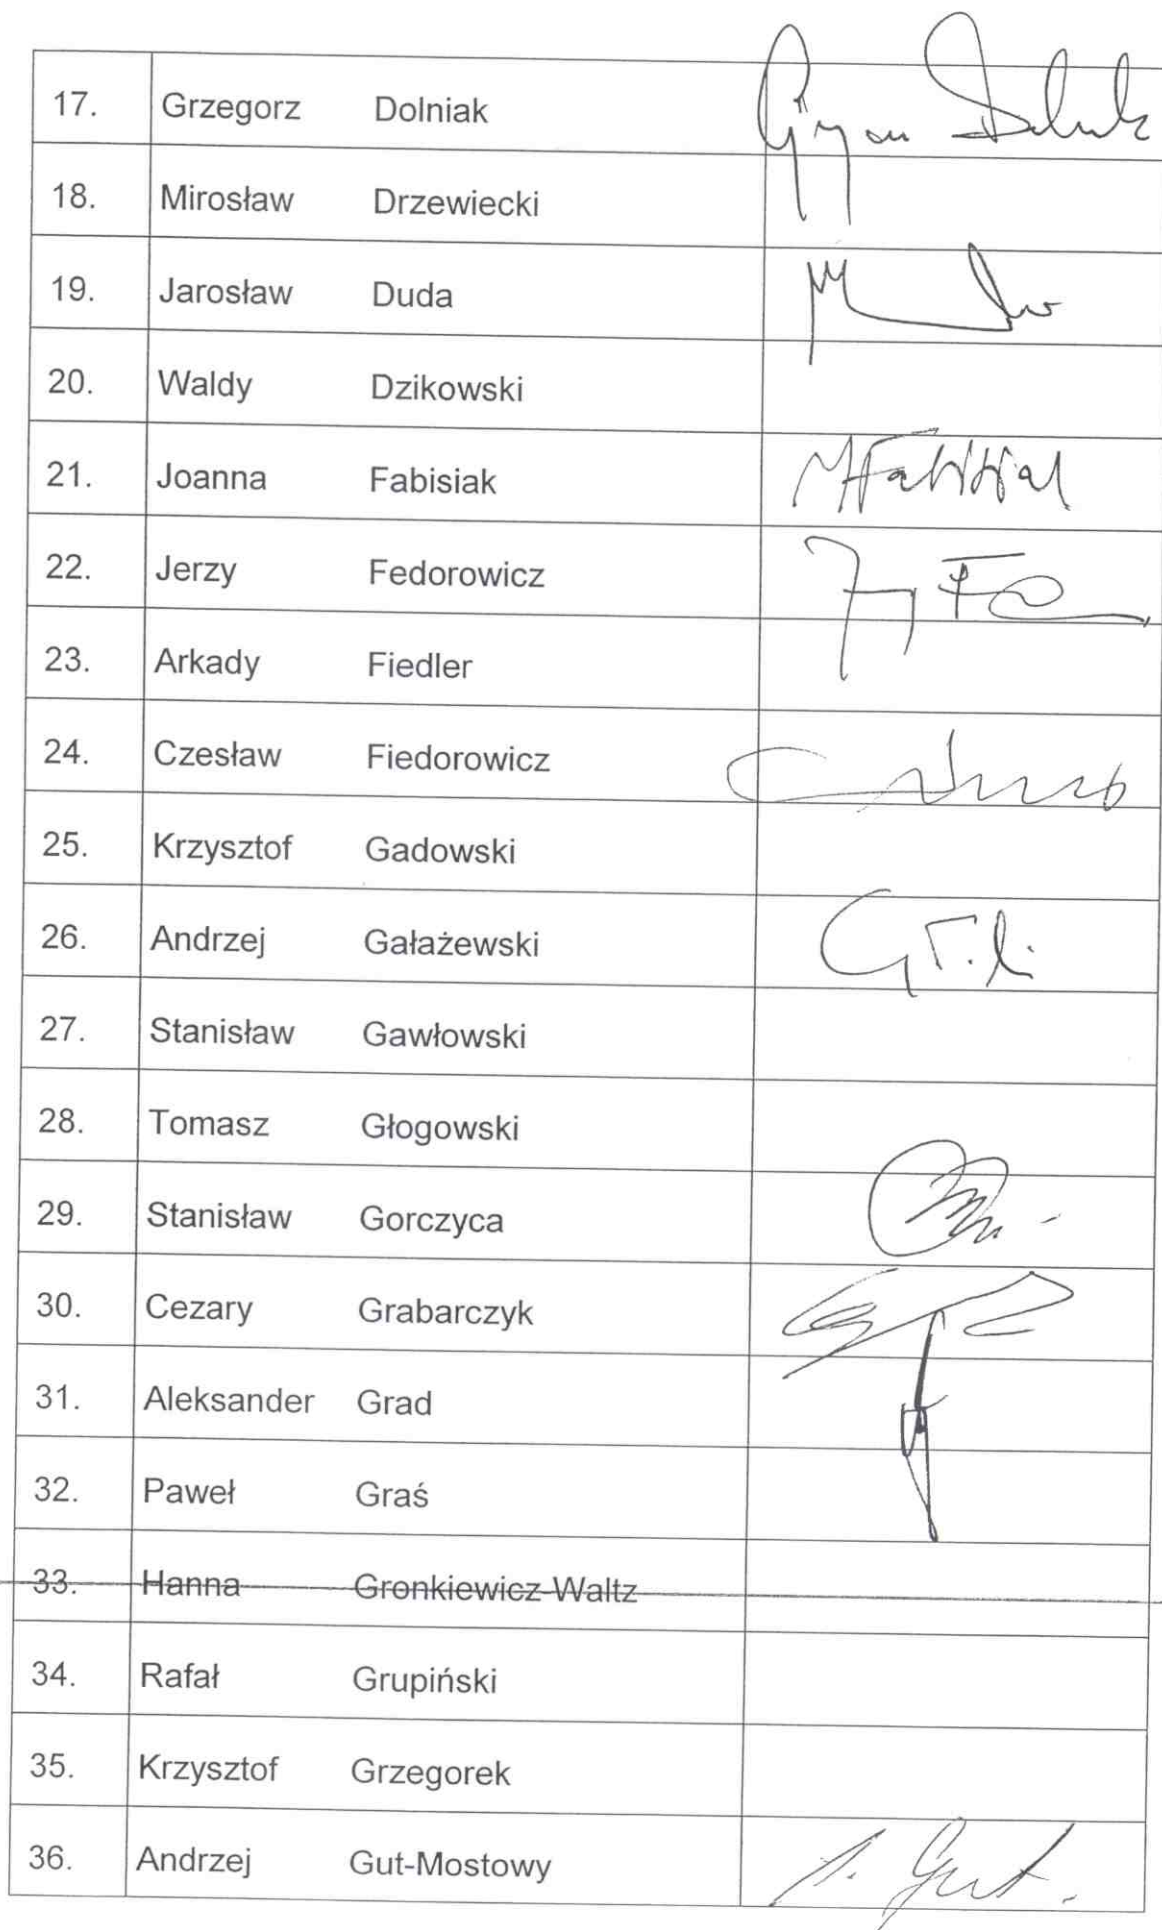 17. Grzegorz Dolniak
18. Mirosław Drzewiecki
19. Jarosław Duda
20. Waldy Dzikowski
21. Joanna Fabisiak
22. Jerzy Fedorowicz
23. Arkady Fiedler
24. Czesław Fiedorowicz
25. Krzysztof Gadowski
26. Andrzej Gałażewski
27. Stanisław Gawłowski
28. Tomasz Głogowski
29. Stanisław Gorczyca
30. Cezary Grabarczyk
31. Aleksander Grad
32. Paweł Graś
33. Hanna Gronkiewicz-Waltz
34. Rafał Grupiński
35. Krzysztof Grzegorek
36. Andrzej Gut-Mostowy A. Gut.